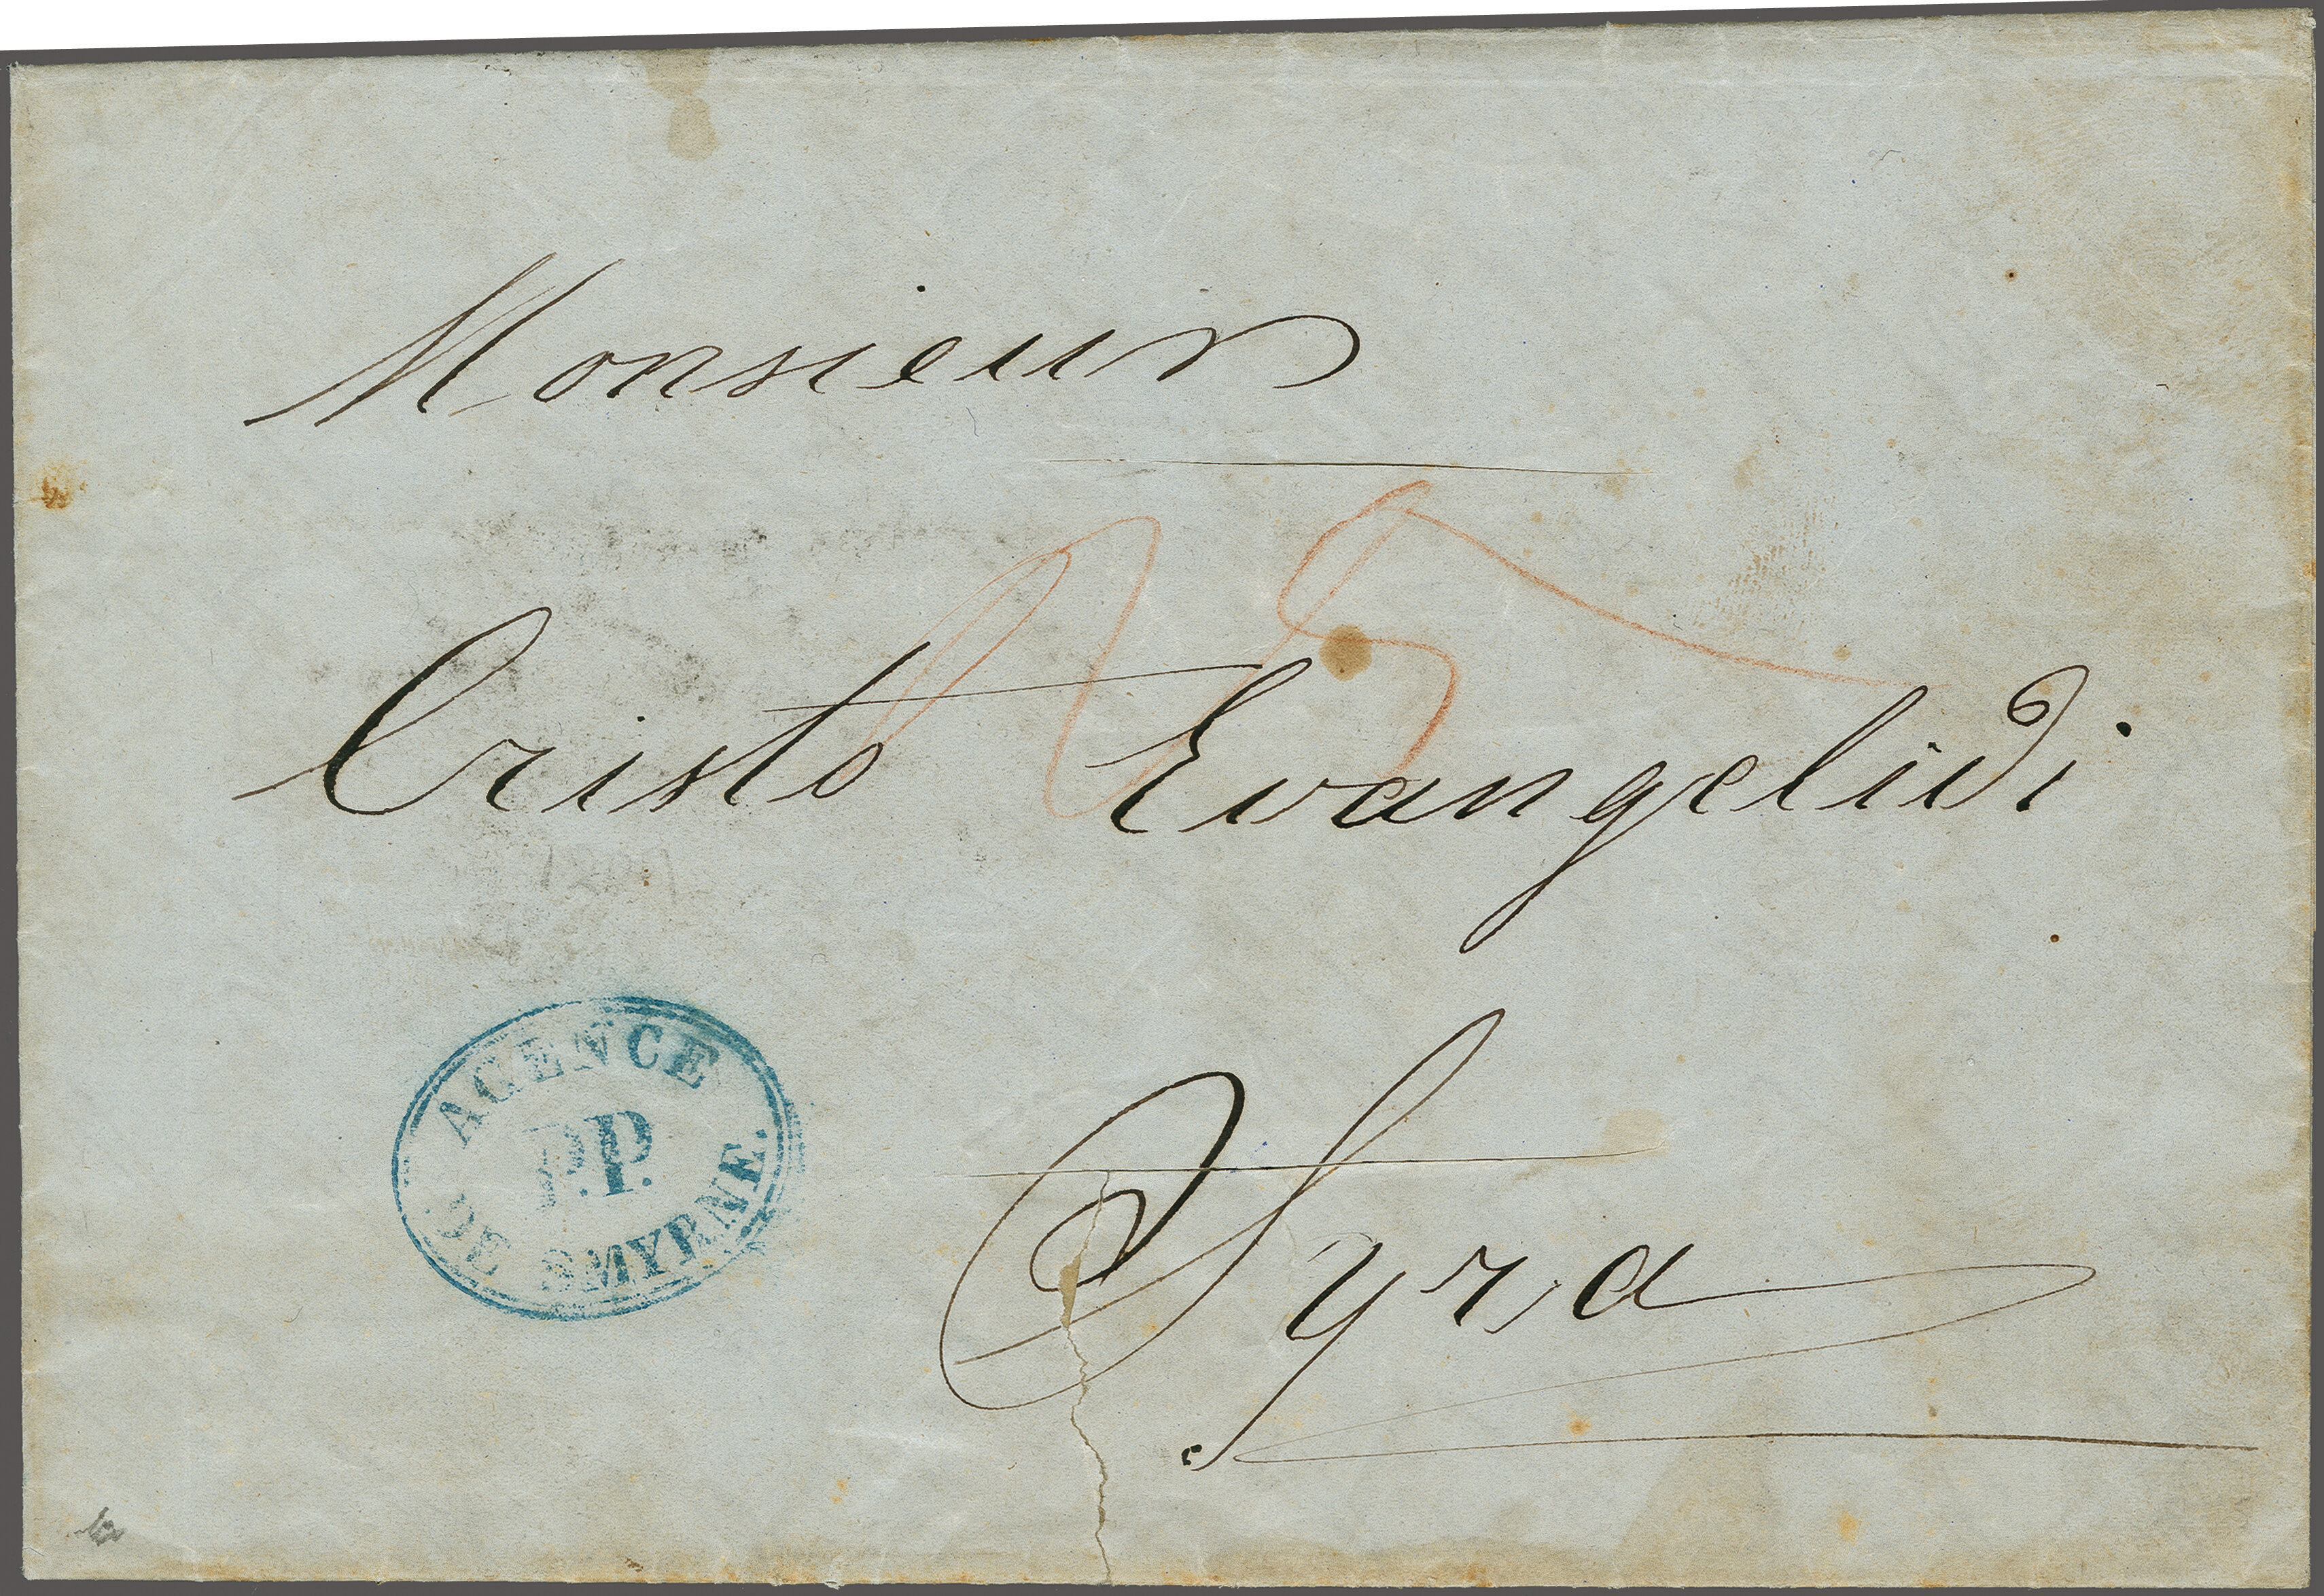 Monsieur
Cristo Evangelidi
AGENCE
P.P.
DE SMYRNE.
Syra